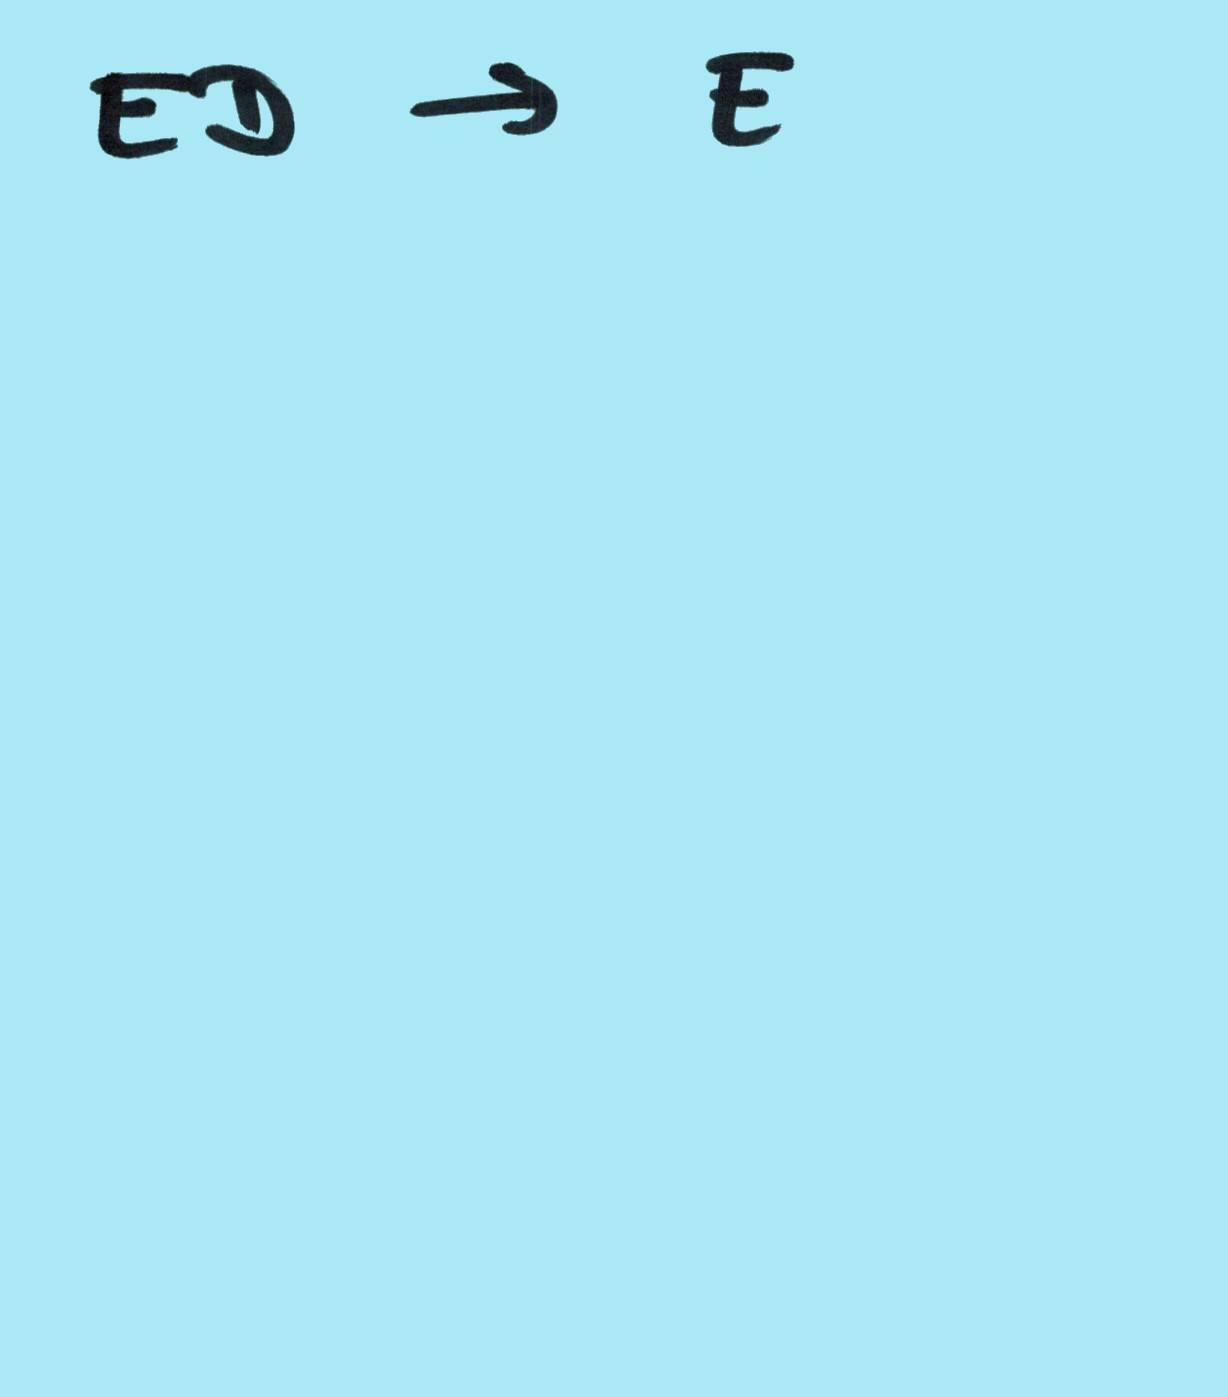 ED → E